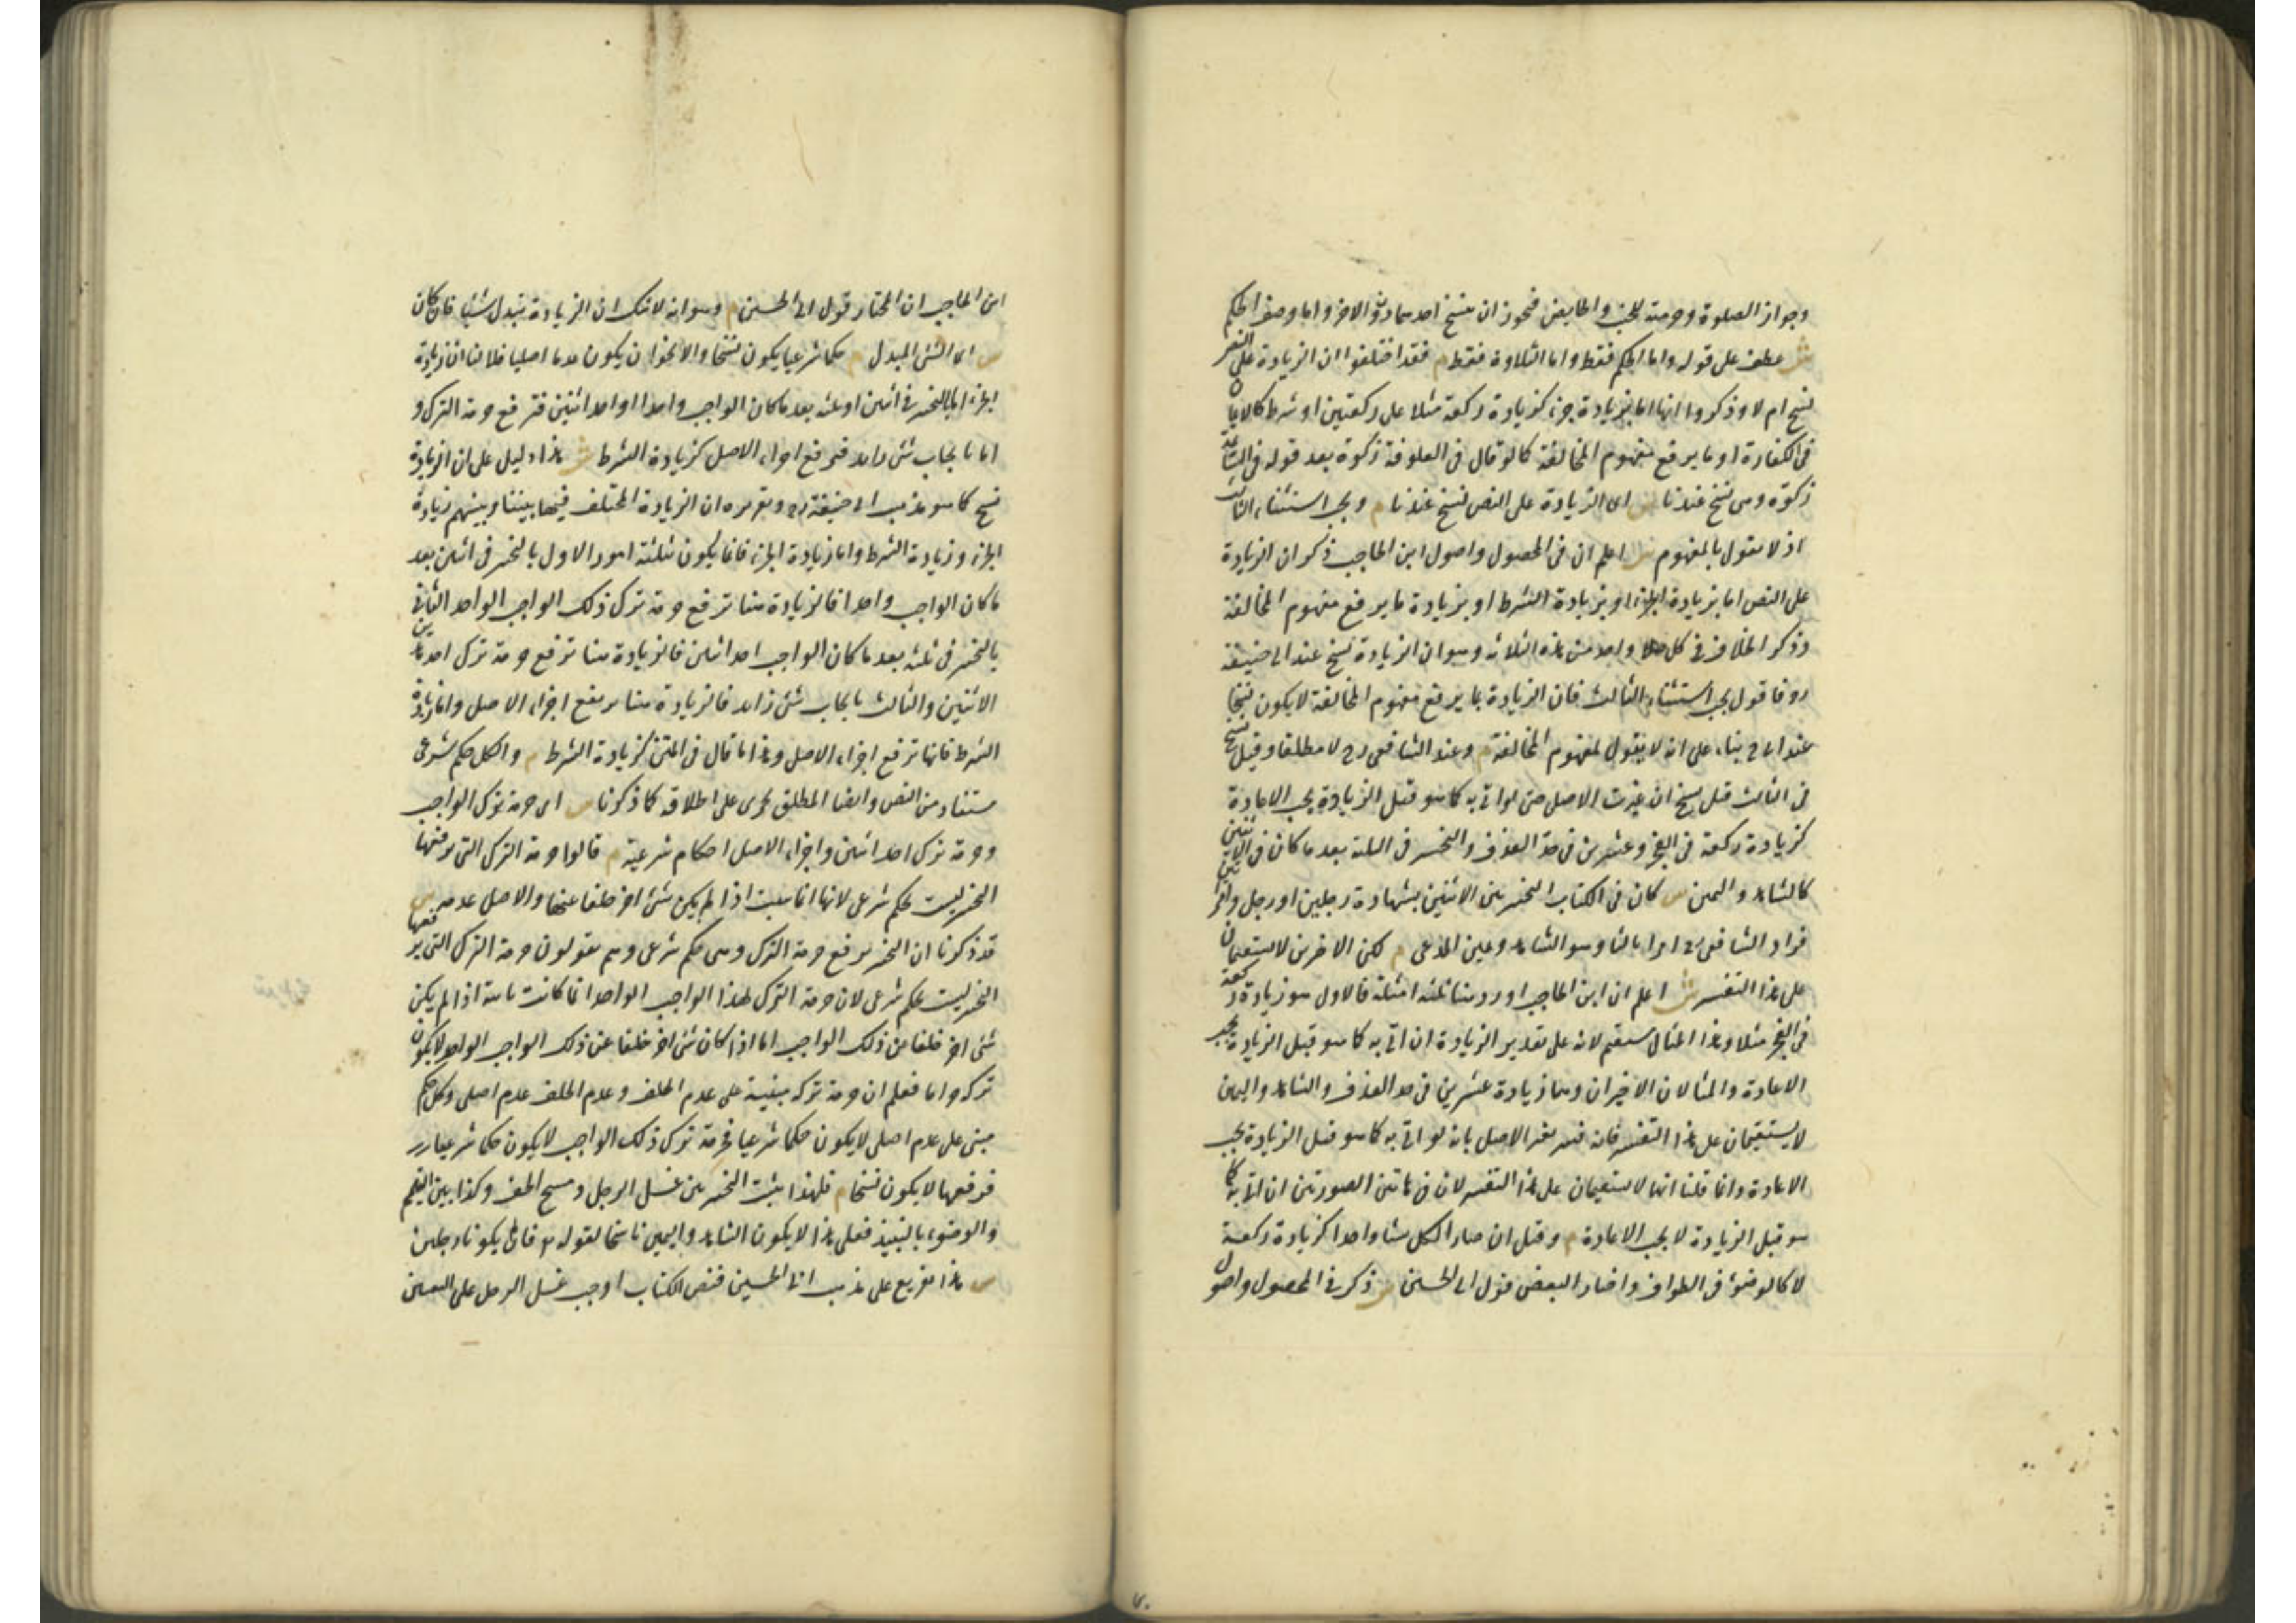 وجواز الصلوة وحرمته للجنب والحايض فيجوز ان ينسخ احدهما دون الاخر واما وصف الحكم
ش عطف على قوله واما الحكم فقط واما التلاوة فقط م فقد اختلفوا ان الزيادة على النص
نسخ ام لا وذكروا انها اما بزيادة جزء كزيادة ركعة مثلا على ركعتين او شرط كالايمان
فى الكفارة او ما يرفع مفهوم المخالفة كما لو قال فى العلوفة زكوة بعد قوله فى السائمة
زكوة وهى نسخ عندنا ش اى الزيادة على النص نسخ عندنا م ويجب استثناء الثالث
اذ لا نقول بالمفهوم ش اعلم ان فى المحصول واصول ابن الحاجب ذكر ان الزيادة
على النص اما بزيادة الجزء او بزيادة الشرط او بزيادة ما يرفع مفهوم المخالفة
وذكر الخلاف فى كل واحد من هذه الثلاثة وهو ان الزيادة نسخ عند ابى حنيفة
رح فاقول يجب استثناء الثالث فان الزيادة بما يرفع مفهوم المخالفة لا يكون نسخا
عند ابى ح بناء على انه لا يقول بمفهوم المخالفة م وعند الشافعى رح لا مطلقا وقيل نسخ
فى الثالث وقيل نسخ ان غيرت الاصل حتى لو اتى به كما هو قبل الزيادة يجب الاعادة
كزيادة ركعة فى الفجر وعشرين فى حد القذف والتخيير فى الثلثة بعد ما كان فى الاثنين
كالشاهد واليمين ش كان فى الكتاب التخيير بين الاثنين بشهادة رجلين او رجل وامراتين
فزاد الشافعى رح امرا ثالثا وهو الشاهد ويمين المدعى م لكن الاخيرين لا يستقيمان
على هذا التفسير ش اعلم ان ابن الحاجب اورد هنا ثلثة امثلة فالاول هو زيادة ركعة
فى الفجر مثلا وهذا المثال مستقيم لانه على تقدير الزيادة ان اتى به كما هو قبل الزيادة يجب
الاعادة والمثالان الاخيران وهما زيادة عشرين فى حد القذف والشاهد واليمين
لا يستقيمان على هذا التفسير فانه فسر تغير الاصل بانه لو اتى به كما هو قبل الزيادة يجب
الاعادة وانما قلنا انهما لا يستقيمان على هذا التفسير لان فى هاتين الصورتين ان اتى به كما
هو قبل الزيادة لا يجب الاعادة م وقيل ان صار الكل شيئا واحدا كزيادة ركعة
لا كالوضوء فى الطواف واختار البعض قول ابى الحسين ش ذكر فى المحصول واصول
ابن الحاجب ان المختار قول ابى الحسين م وهو انه لا شك ان الزيادة تبدل شيئا فان كان
ش اى الشئ المبدل م حكما شرعيا يكون نسخا والا نحو ان يكون عدما اصليا فلا لنا ان زيادة
الجزء اما بالتخيير فى اثنين او ثلثة بعد ما كان الواجب واحدا او احد اثنين فترفع حرمة الترك و
اما بايجاب شئ زايد فيرفع اجزاء الاصل كزيادة الشرط ش هذا دليل على ان الزيادة
نسخ كما هو مذهب ابى حنيفة رح وتقريره ان الزيادة المختلف فيها بيننا وبينهم زيادة
الجزء وزيادة الشرط واما زيادة الجزء فانما يكون بثلثة امور الاول بالتخيير فى اثنين بعد
ما كان الواجب واحدا فالزيادة هنا ترفع حرمة ترك ذلك الواجب الواحد الثانى
بالتخيير فى ثلثة بعد ما كان الواجب احد اثنين فالزيادة هنا ترفع حرمة ترك احد هذين
الاثنين والثالث بايجاب شئ زايد فالزيادة هنا ترفع اجزاء الاصل واما زيادة
الشرط فانها ترفع اجزاء الاصل وهذا ما قال فى المتن كزيادة الشرط م والكل حكم شرعى
مستفاد من النص وايضا المطلق يجرى على اطلاقه كما ذكرنا ش اى حرمة ترك الواجب
وحرمة ترك احد اثنين واجزاء الاصل احكام شرعية م قالوا حرمة الترك التى يرفعها
التخيير ليست بحكم شرعى لانها انما يثبت اذا لم يكن شئ اخر خلفا عنها والاصل عدمه ش
قد ذكرنا ان التخيير يرفع حرمة الترك وهى حكم شرعى وهم يقولون حرمة الترك التى يرفعها
التخيير ليست بحكم شرعى لان حرمة الترك لهذا الواجب الواحد انما كانت ثابتة اذا لم يكن
شئ اخر خلفا عن ذلك الواجب اما اذا كان شئ اخر خلفا عن ذلك الواجب الواحد لا يكون
تركه حراما فعلم ان حرمة تركه مبنية على عدم الخلف وعدم الخلف عدم اصلى وكل حكم
مبنى على عدم اصلى لا يكون حكما شرعيا فحرمة ترك ذلك الواجب لا يكون حكما شرعيا
فرفعها لا يكون نسخا م فلهذا يثبت التخيير بين غسل الرجل ومسح الخف وكذا بين التيمم
والوضوء بالنبيذ فعلى هذا لا يكون الشاهد واليمين ناسخا لقوله تع فان لم يكونا رجلين
ش هذا تفريع على مذهب ابى الحسين فنص الكتاب اوجب غسل الرجل على التعيين